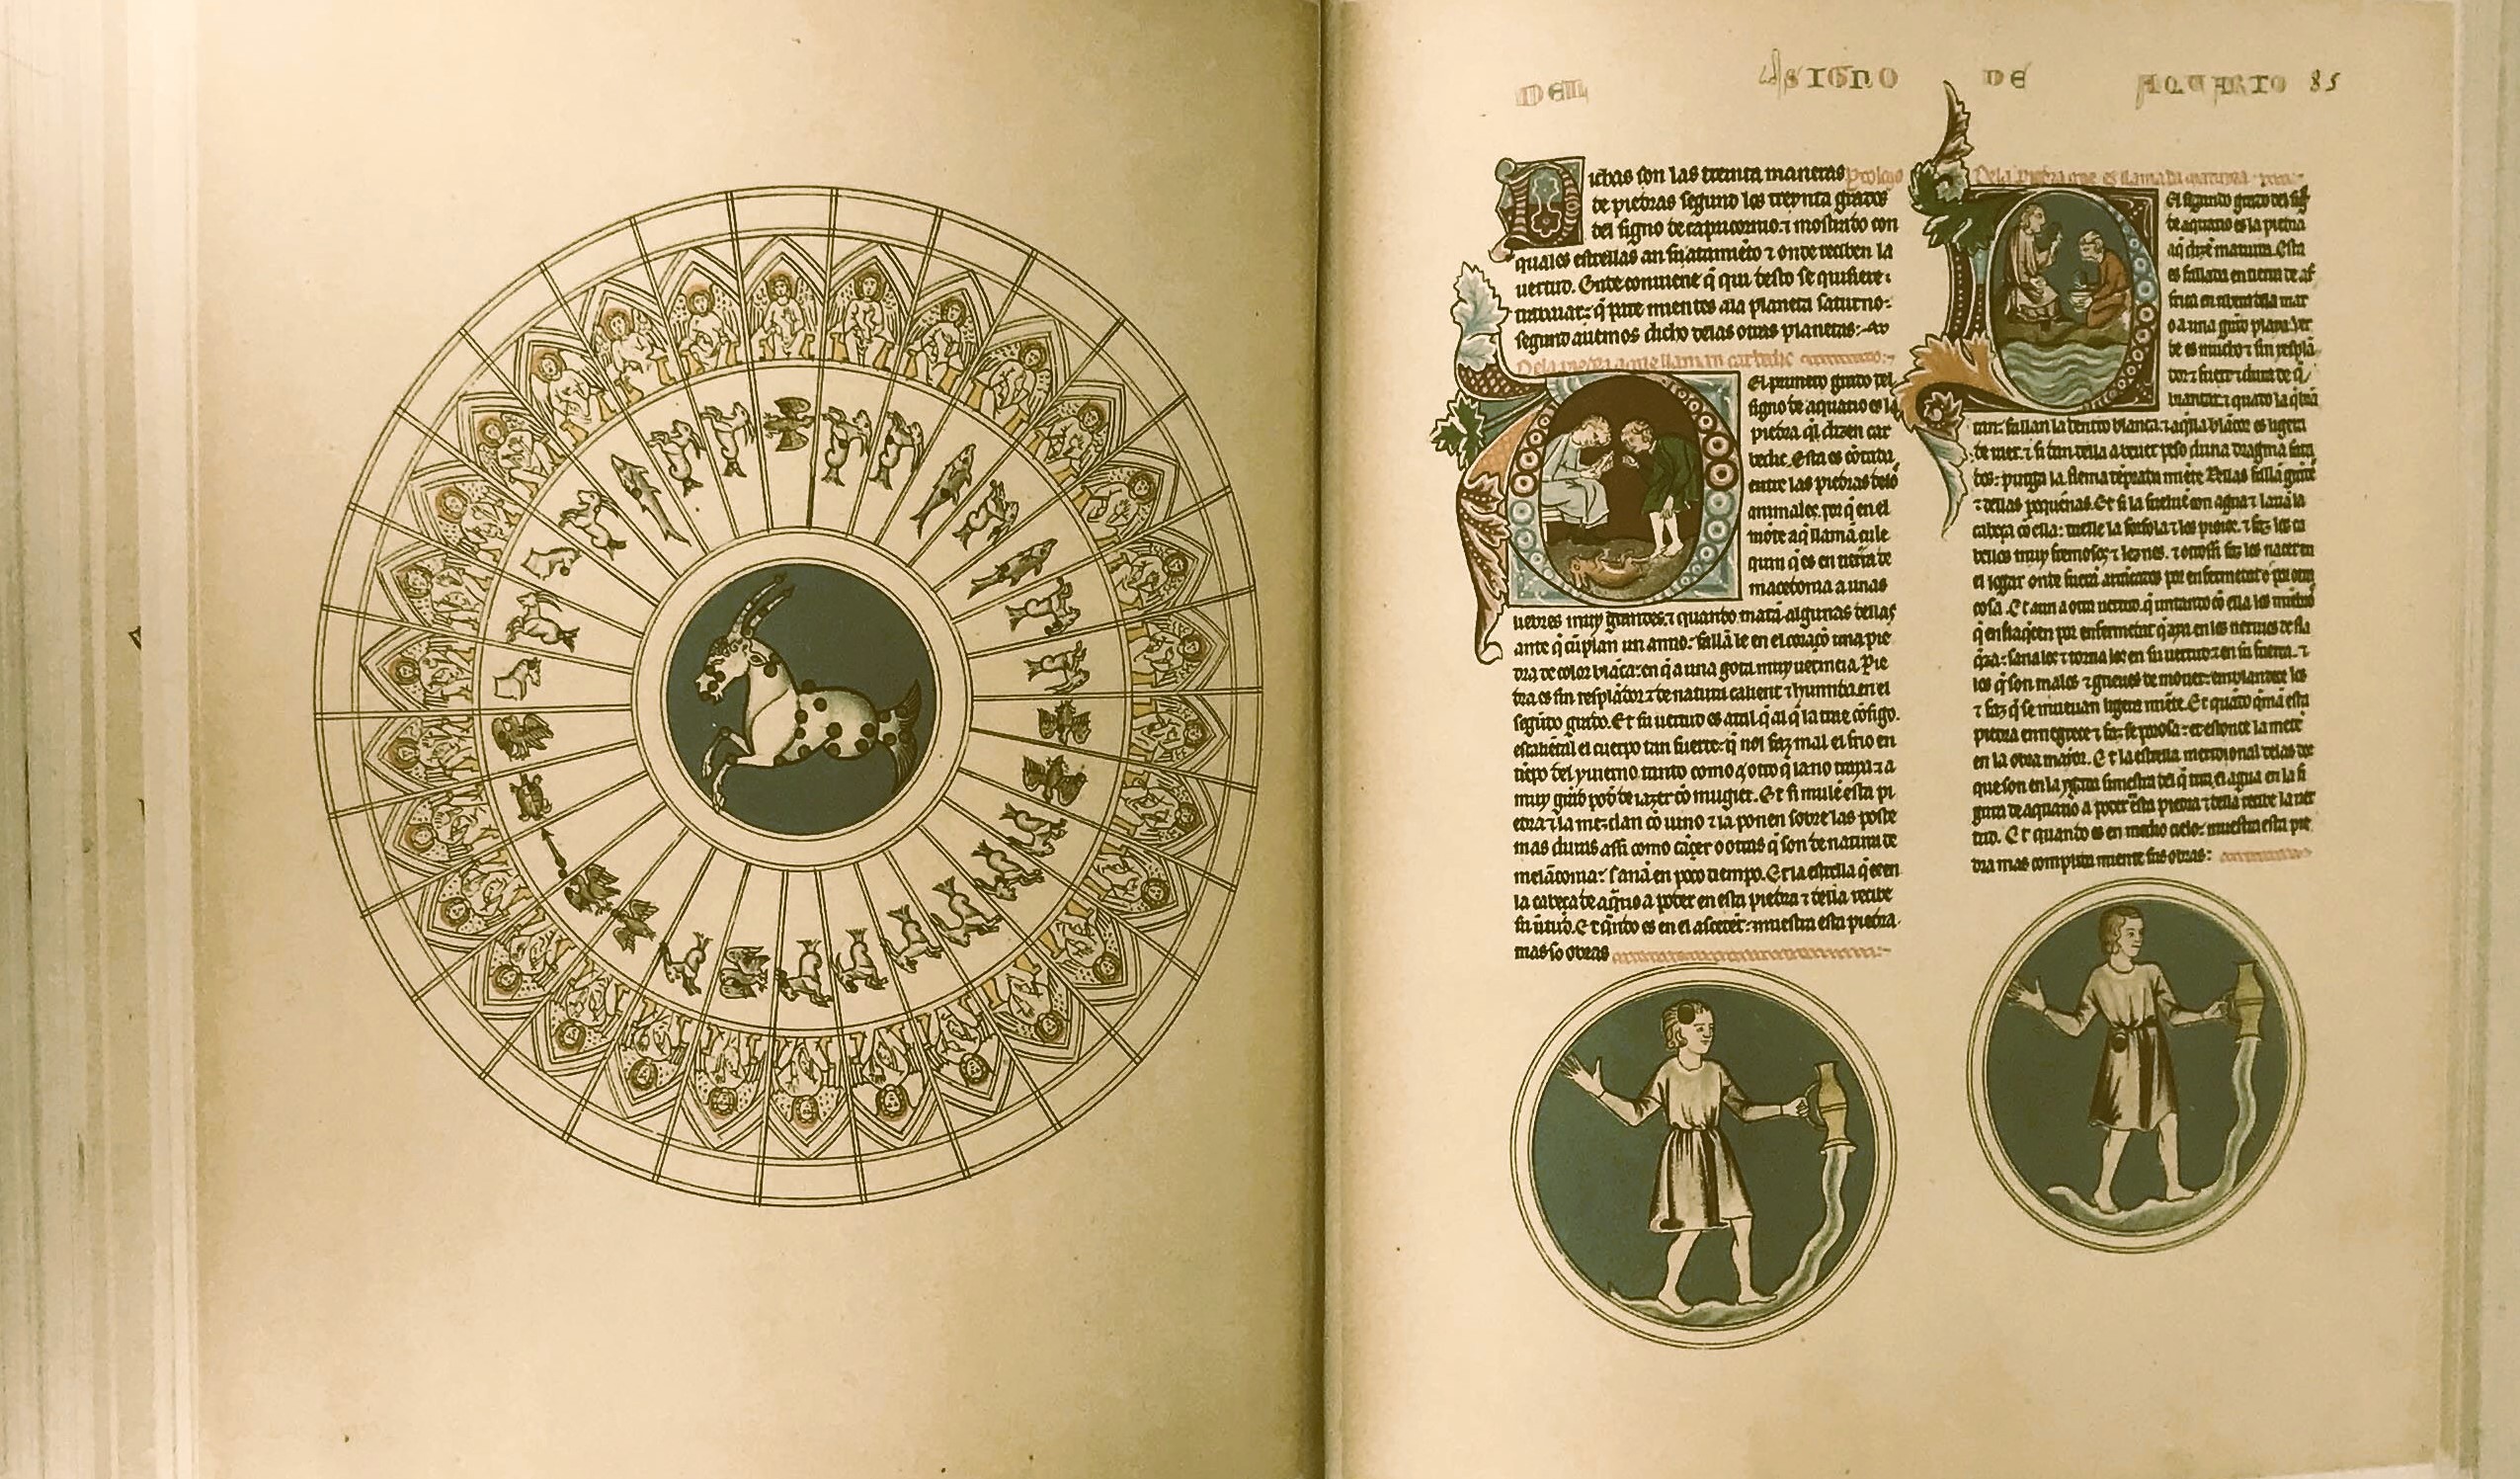 DEL SIGNO DE AQUARIO 85
ichas son las treinta maneras Prologo
de piedras segund los treynta grados
del signo de capricornio. ⁊ mostrado con
quales estrellas an su atamiẽto ⁊ onde reciben la
uertud. Onde conuiene q̃ qui desto se quisiere
trabaiar: q̃ pare mientes ala planeta saturno:
segund auemos dicho delas otras planetas:
Dela piedra aque llaman
El primero grado del
signo de aquario es la
piedra q̃l dizen car
bedic. Esta es cõtada
entre las piedras delos
animales. por q̃ en el
mõte aq̃ llamã cule
quin q̃ es en tierra de
macedonia a unas
liebres muy grandes. ⁊ quando matã algunas dellas
ante q̃ cũplan un anno: fallã le en el coraçõ una pie
dra de color blãca: en q̃ a una gota muy uermeia. Pie
dra es sin resplãdor ⁊ de natura calient ⁊ humida. en el
segũdo grado. Et su uertud es atal q̃ al q̃ la trae cõsigo.
escalentãl el cuerpo tan fuerte: q̃ nol faz mal el frio en
tiẽpo del yuierno tanto como a otro q̃ la no traya: ⁊ a
muy grãd poder de iazer cõ mugier. Et si muelẽ esta pi
edra ⁊ la mezclan cõ uino ⁊ la ponen sobre las poste
mas duras assi como cãçer o otras q̃ son de natura de
melãconia: sanã en poco tiempo. Et la estrella q̃ es en
la cabeça de aq̃rio a poder en esta piedra ⁊ della recibe
su uirtud. Et quãdo es en el ascendẽt: muestra esta piedra
mas so obras
Dela piedra que es llamada
El segundo grado del sig
de aquario es la piedra
aq̃ dizẽ Esta
es fallada en tierra de af
frica en ribera dela mar
o a una grãd planta. Ver
de es mucho ⁊ sin resplã
dor ⁊ fuert ⁊ dura de q̃
brantar. ⁊ quando la q̃brã
tan: fallan la dentro blanca. ⁊ aq̃lla blãcor es ligera
de moler. ⁊ si dan della a beuer peso duna dragma
purga la flema tẽprada miẽtre. Dellas fallã grãdes
⁊ dellas pequennas. Et si la con agua ⁊ lauã la
cabeça cõ ella: tuelle la ⁊ los pioios. ⁊ faz los ca
bellos muy fremosos ⁊ ⁊ otrossi faz los nacer en
el logar onde fuerẽ arrãcados por enfermedat o por otra
cosa. Et aun a otra uertud. q̃ untando cõ ella los miẽbros
q̃ enflaq̃cen por enfermedat q̃ aya en los neruios
sana los ⁊ torna los en su uertud ⁊ en su fuerça. ⁊
los q̃ son malos ⁊ grieues de mouer: emblandece los
⁊ faz q̃ se mueuan ligera miẽte. Et quãdo q̃mã esta
piedra ennegrece ⁊ faz se et estonce la metẽ
en la obra maior. Et la estrella meridional delas dos
que son en la yjada siniestra del q̃ tiene el agua en la fi
gura de aquario a poder ẽ esta piedra ⁊ della recibe la uer
tud. Et quando es en medio cielo: muestra esta pie
dra mas complida miente sus obras: